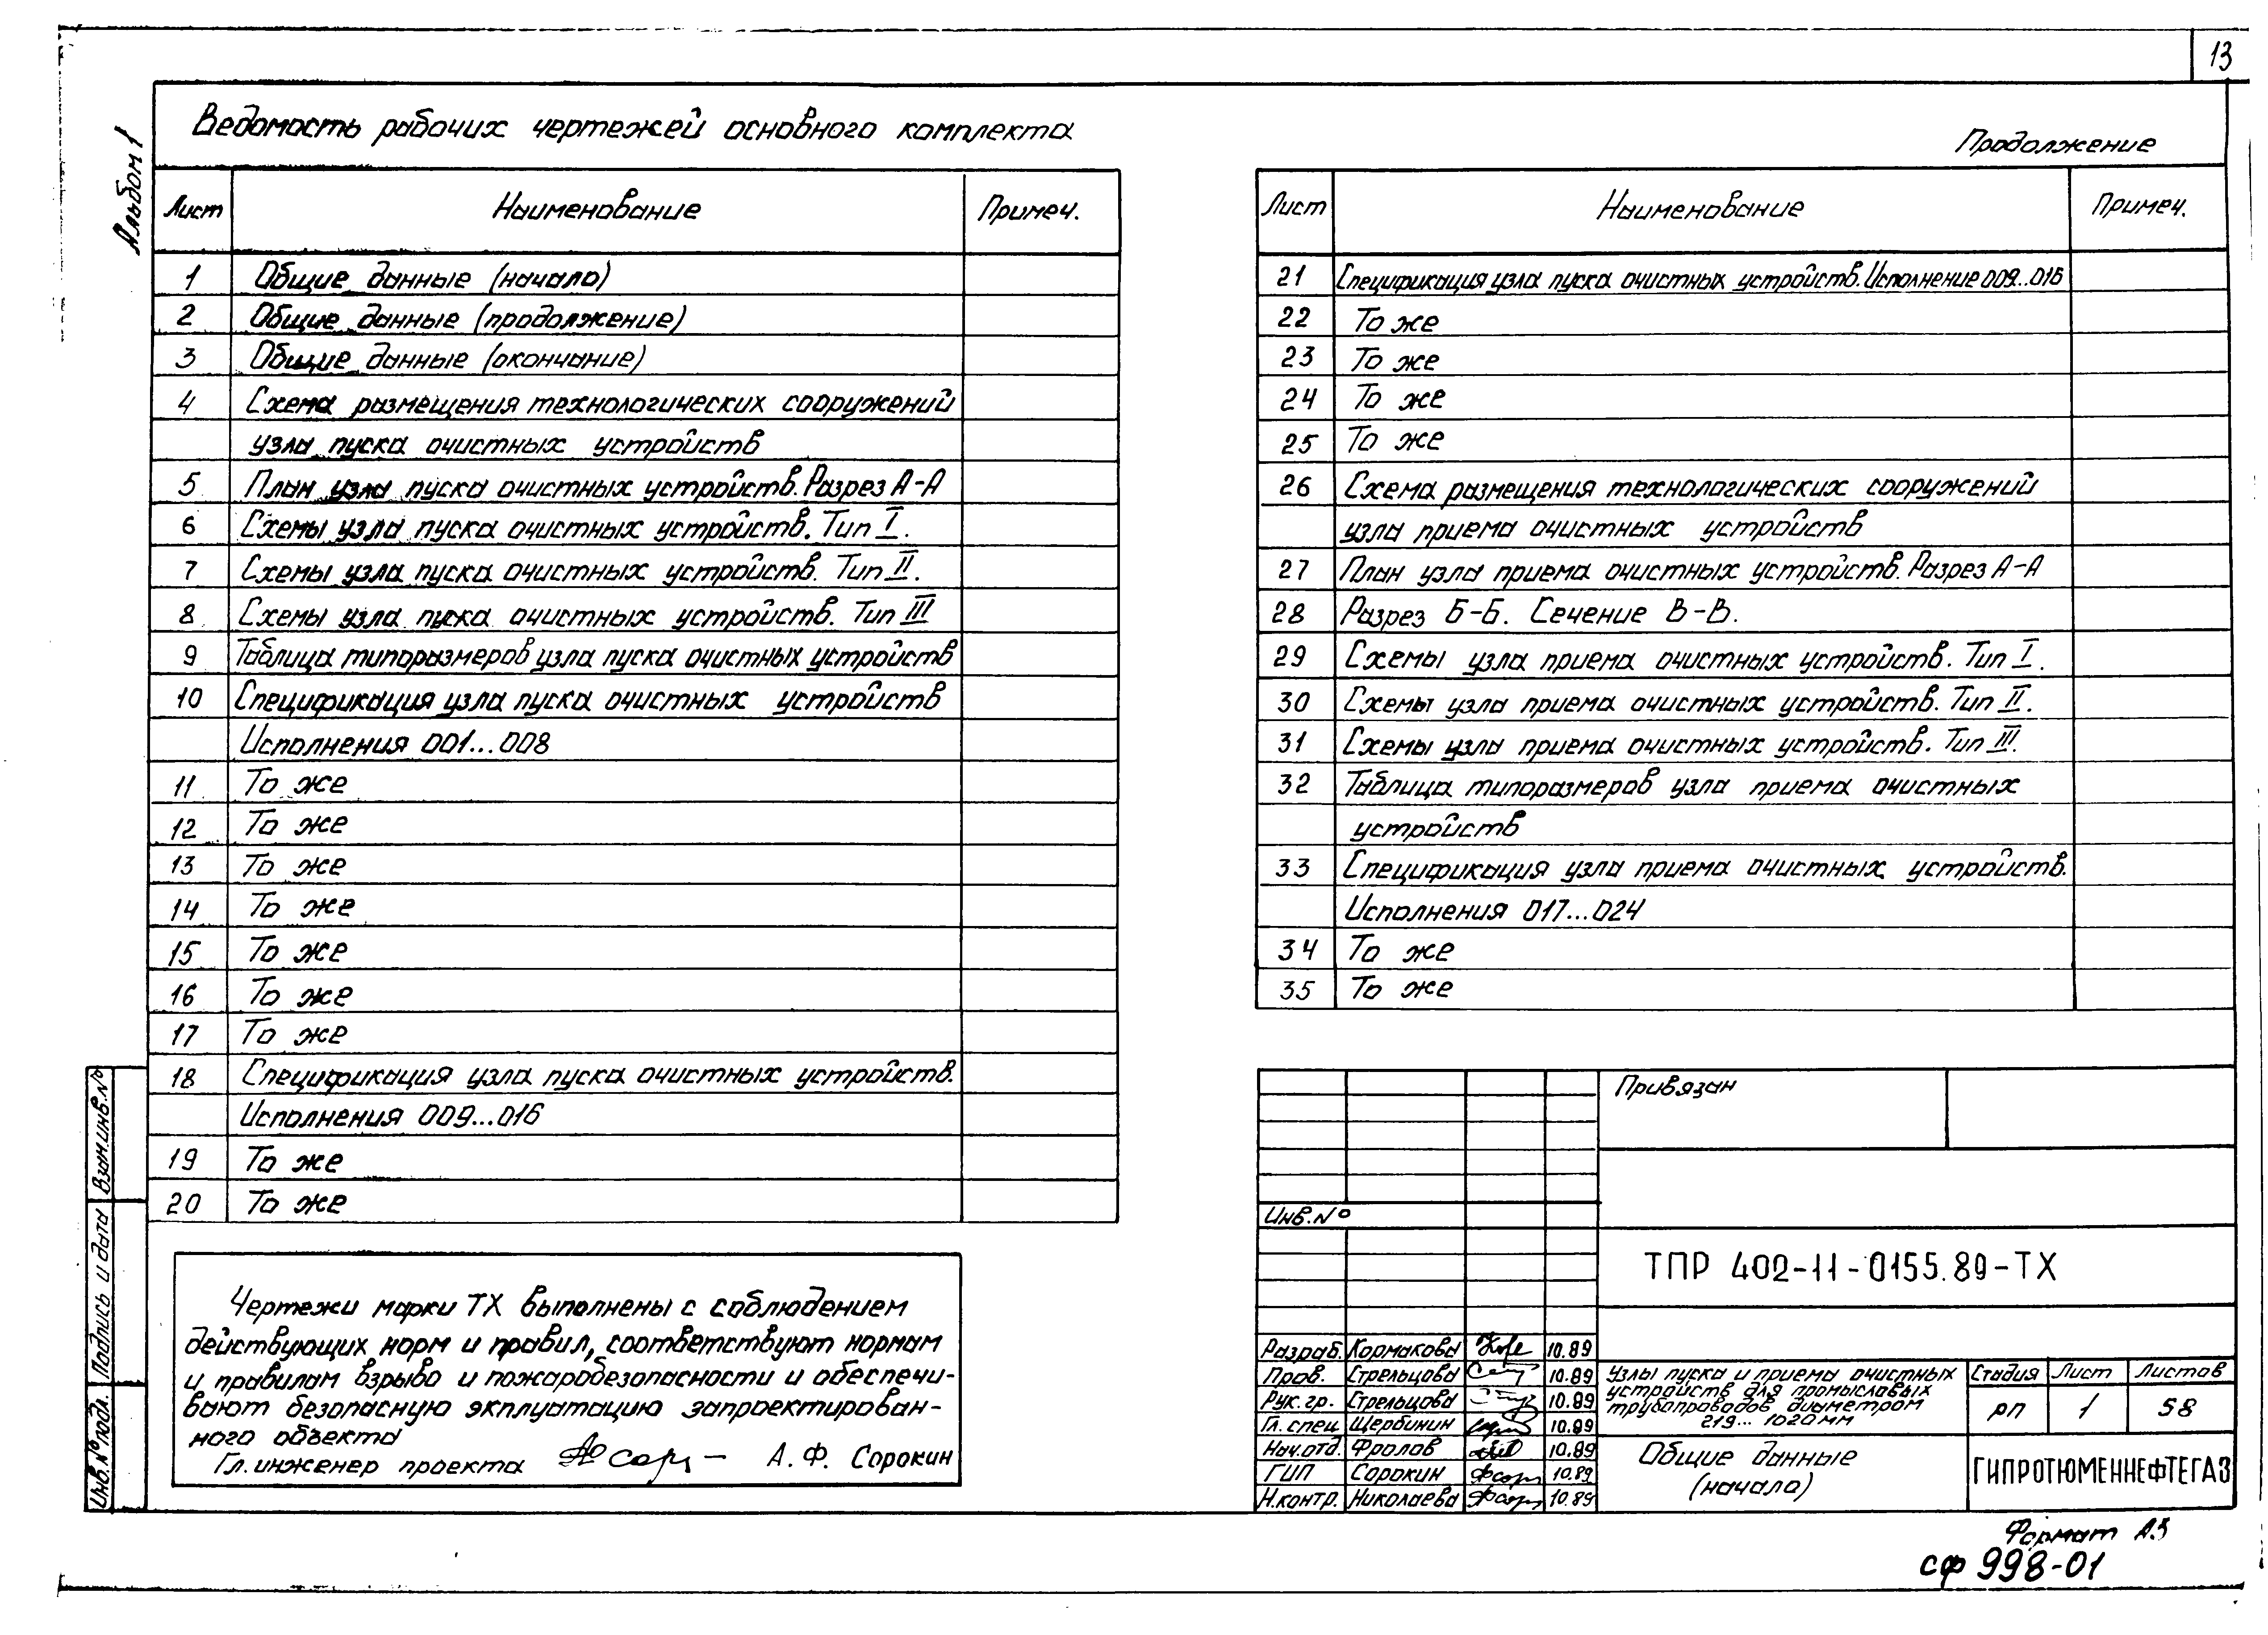 13
Альбом 1
Ведомость рабочих чертежей основного комплекта
Лист Наименование Примеч.
1 Общие данные (начало)
2 Общие данные (продолжение)
3 Общие данные (окончание)
4 Схема размещения технологических сооружений
узла пуска очистных устройств
5 План узла пуска очистных устройств. Разрез А-А
6 Схемы узла пуска очистных устройств. Тип I.
7 Схемы узла пуска очистных устройств. Тип II.
8 Схемы узла пуска очистных устройств. Тип III
9 Таблица типоразмеров узла пуска очистных устройств
10 Спецификация узла пуска очистных устройств
Исполнения 001...008
11 То же
12 То же
13 То же
14 То же
15 То же
16 То же
17 То же
18 Спецификация узла пуска очистных устройств.
Исполнения 009...016
19 То же
20 То же
Продолжение
Лист Наименование Примеч.
21 Спецификация узла пуска очистных устройств. Исполнение 009...016
22 То же
23 То же
24 То же
25 То же
26 Схема размещения технологических сооружений
узла приема очистных устройств
27 План узла приема очистных устройств. Разрез А-А
28 Разрез Б-Б. Сечение В-В.
29 Схемы узла приема очистных устройств. Тип I.
30 Схемы узла приема очистных устройств. Тип II.
31 Схемы узла приема очистных устройств. Тип III.
32 Таблица типоразмеров узла приема очистных
устройств
33 Спецификация узла приема очистных устройств.
Исполнения 017...024
34 То же
35 То же
Чертежи марки ТХ выполнены с соблюдением
действующих норм и правил, соответствуют нормам
и правилам взрыво и пожаробезопасности и обеспечи-
вают безопасную эксплуатацию запроектирован-
ного объекта
Гл. инженер проекта А. Ф. Сорокин
Взам.инв.№
Подпись и дата
Инв.№ подл.
Привязан
Инв.№
ТПР 402-11-0155.89-ТХ
Разраб. Кормакова 10.89
Пров. Стрельцова 10.89
Рук. гр. Стрельцова 10.89
Гл. спец Щербинин 10.89
Нач.отд. Фролов 10.89
ГИП Сорокин 10.89
Н.контр. Николаева 10.89
Узлы пуска и приема очистных
устройств для промысловых
трубопроводов диаметром
219... 1020 мм
Стадия Лист Листов
рп 1 58
Общие данные
(начало)
ГИПРОТЮМЕННЕФТЕГАЗ
Формат А3
сф 998-01